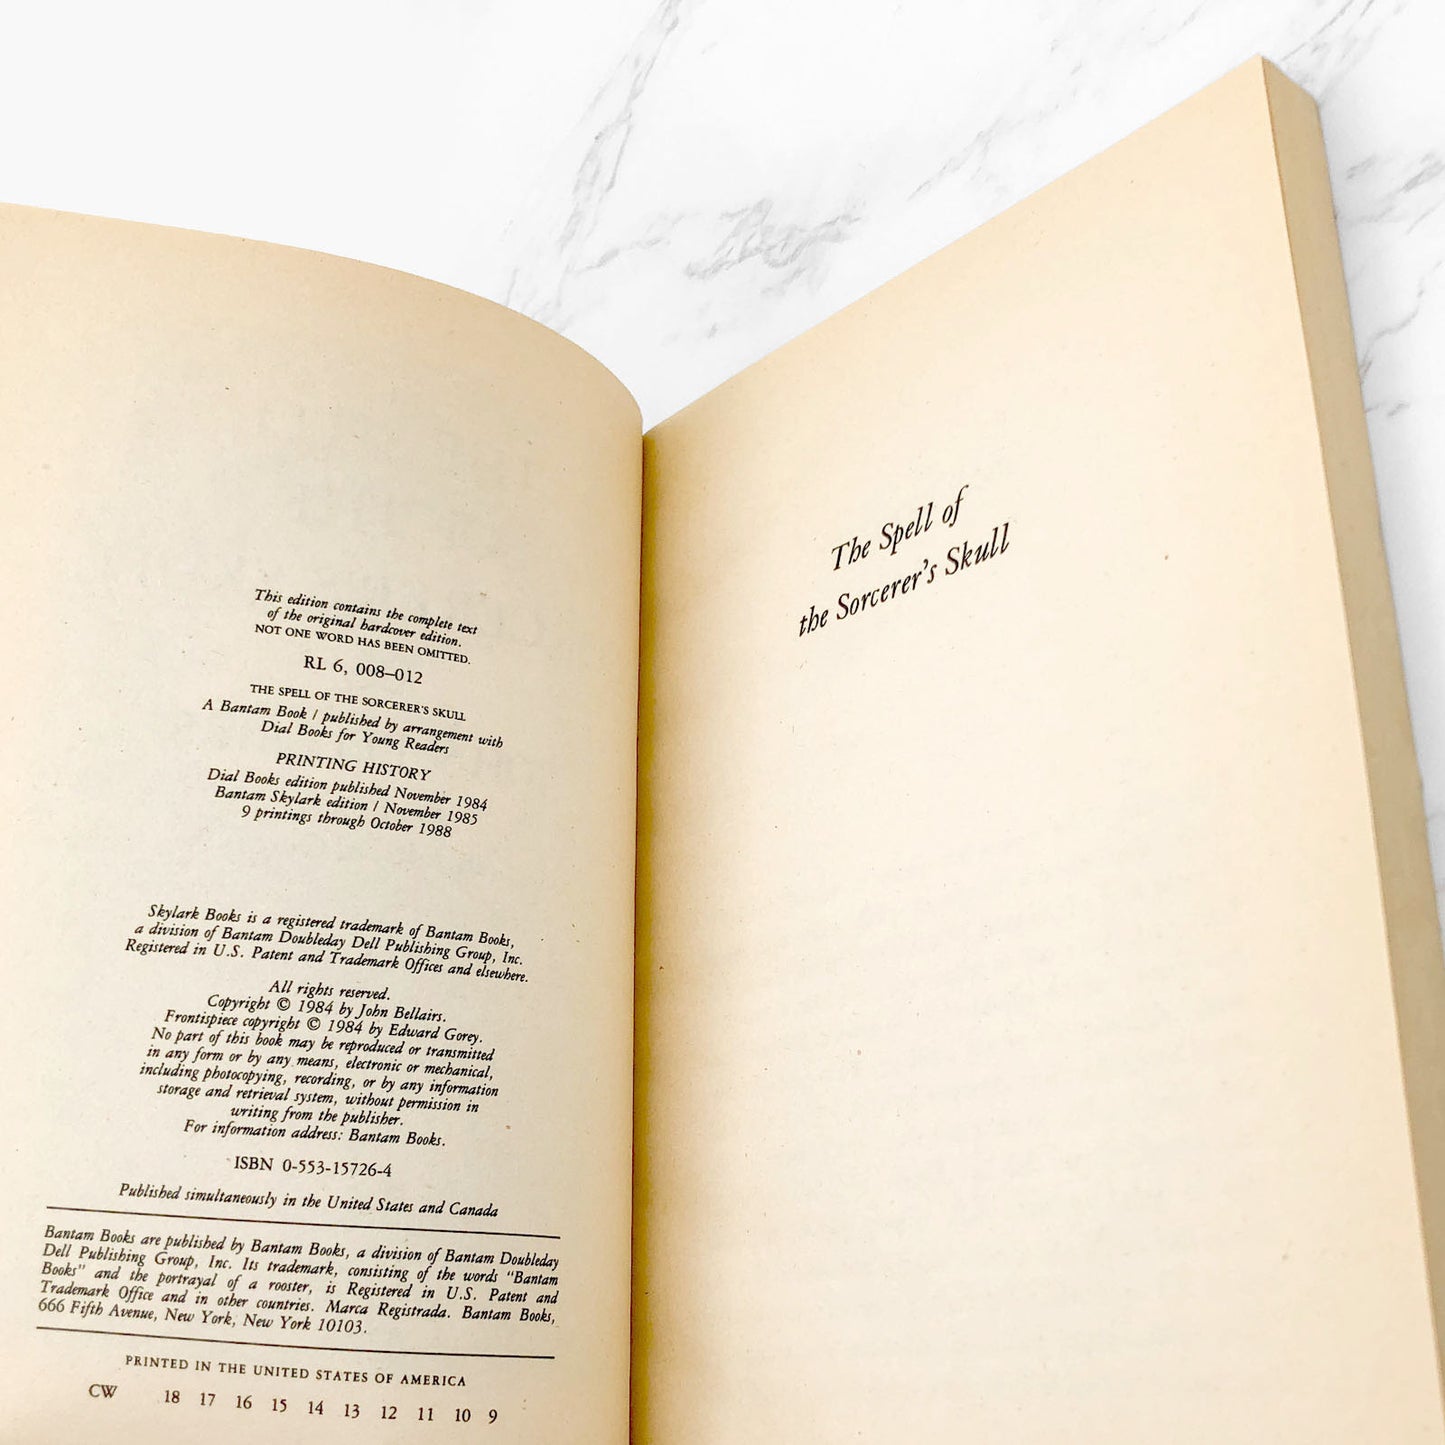 This edition contains the complete text
of the original hardcover edition.
NOT ONE WORD HAS BEEN OMITTED.
RL 6, 008–012
THE SPELL OF THE SORCERER'S SKULL
A Bantam Book / published by arrangement with
Dial Books for Young Readers
PRINTING HISTORY
Dial Books edition published November 1984
Bantam Skylark edition / November 1985
9 printings through October 1988
Skylark Books is a registered trademark of Bantam Books,
a division of Bantam Doubleday Dell Publishing Group, Inc.
Registered in U.S. Patent and Trademark Offices and elsewhere.
All rights reserved.
Copyright © 1984 by John Bellairs.
Frontispiece copyright © 1984 by Edward Gorey.
No part of this book may be reproduced or transmitted
in any form or by any means, electronic or mechanical,
including photocopying, recording, or by any information
storage and retrieval system, without permission in
writing from the publisher.
For information address: Bantam Books.
ISBN 0-553-15726-4
Published simultaneously in the United States and Canada
Bantam Books are published by Bantam Books, a division of Bantam Doubleday
Dell Publishing Group, Inc. Its trademark, consisting of the words "Bantam
Books" and the portrayal of a rooster, is Registered in U.S. Patent and
Trademark Office and in other countries. Marca Registrada. Bantam Books,
666 Fifth Avenue, New York, New York 10103.
PRINTED IN THE UNITED STATES OF AMERICA
CW 18 17 16 15 14 13 12 11 10 9
The Spell of
the Sorcerer's Skull